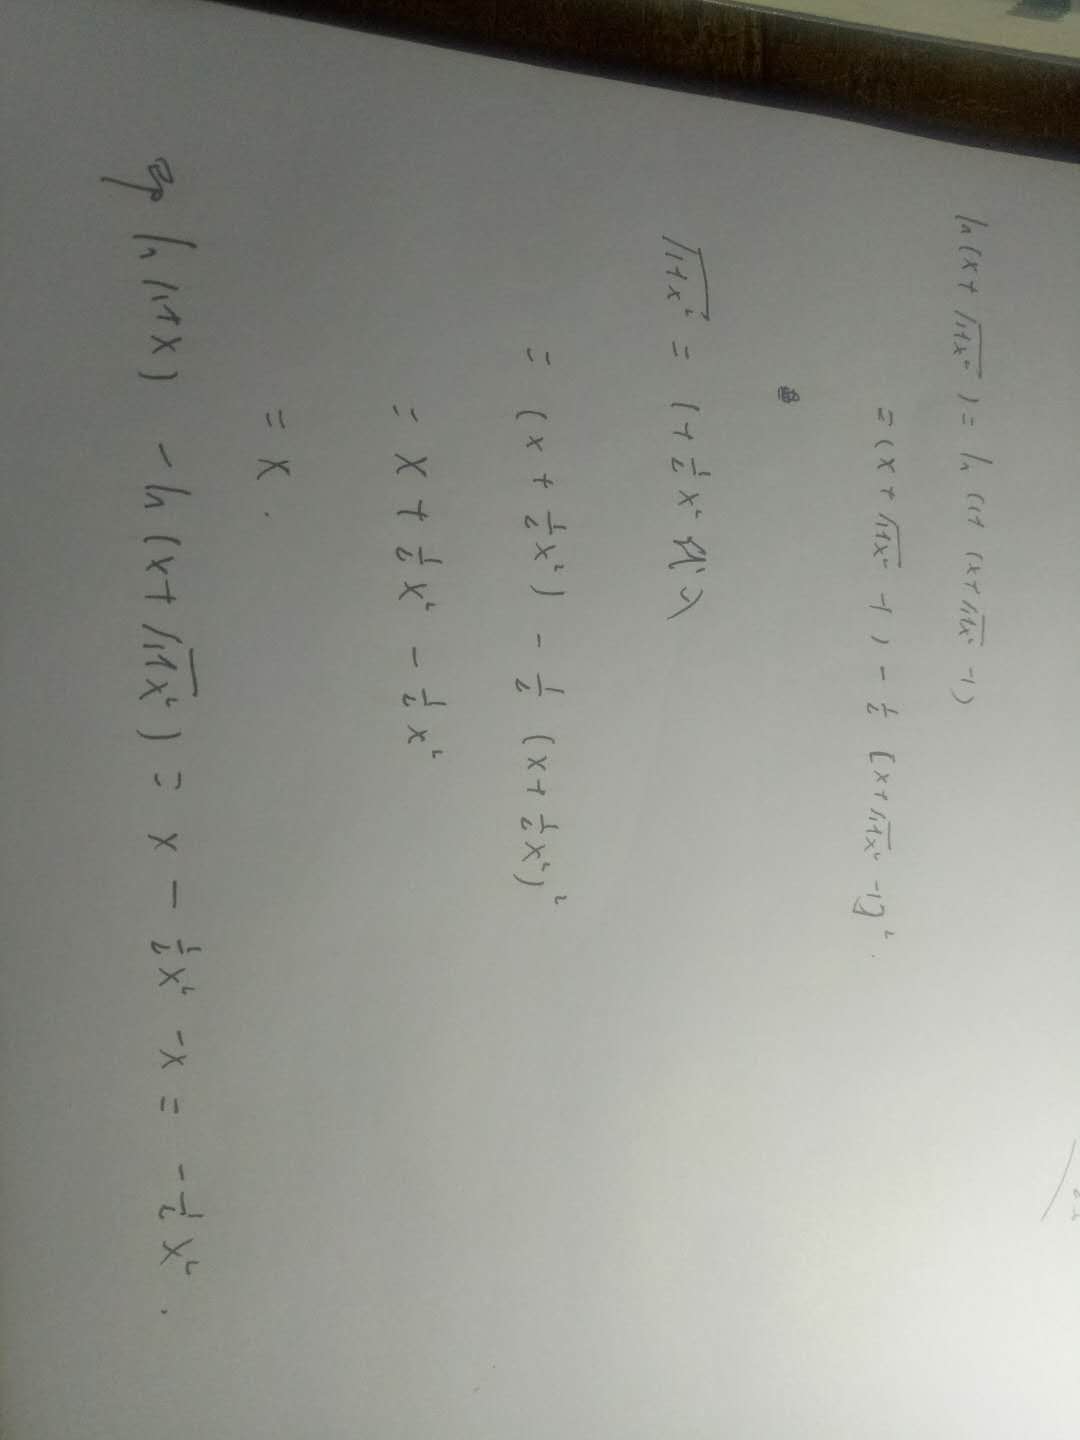 ln(x+√(1+x²))=ln(1+(x+√(1+x²)-1)
=(x+√(1+x²)-1)-½[x+√(1+x²)-1]²
√(1+x²)=1+½x²代入
=(x+½x²)-½(x+½x²)²
=x+½x²-½x²
=x.
即ln(1+x)-ln(x+√(1+x²))=x-½x²-x=-½x².